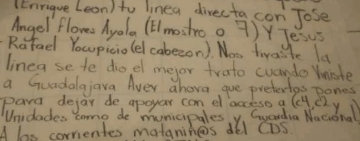 (Enrique Leon) tu linea directa con Jose
Angel Flores Ayala (El mostro o 9) Y Jesus
Rafael Yocupicio (el cabezon). Nos tiraste la
linea se te dio el mejor trato cuando Veniste
a Guadalajara Aver ahora que pretextos pones
para dejar de apoyar con el acceso a (c4, c2 y
Unidades como de municipales y Guardia Nacional
A los corrientes mataniñ@s del CDS